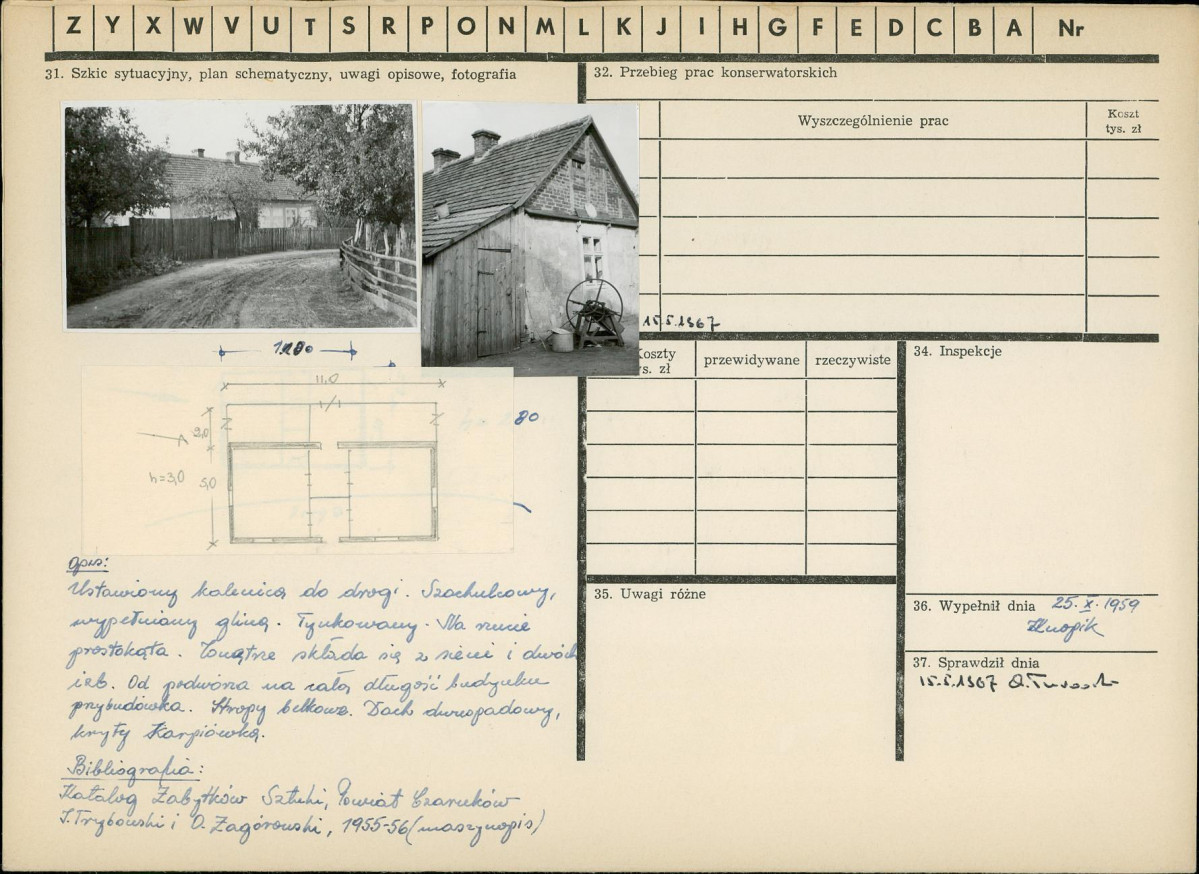 Z Y X W V U T S R P O N M L K J I H G F E D C B A Nr
31. Szkic sytuacyjny, plan schematyczny, uwagi opisowe, fotografia
32. Przebieg prac konserwatorskich
Wyszczególnienie prac
Koszt
tys. zł
15.5.1967
11.0
80
2,0
h=3,0
5,0
Koszty
s. zł
przewidywane
rzeczywiste
34. Inspekcje
opis:
Ustawiony kalenicą do drogi. Szachulcowy,
wypełniany gliną. Tynkowany. Na rzucie
prostokąta. Wnętrze składa się z sieni i dwóch
izb. Od podwórza na całą długość budynku
przybudówka. Stropy belkowe. Dach dwuspadowy,
kryty Karpiówką.
Bibliografia:
Katalog Zabytków Sztuki, Powiat Czarnków
D. Zagórowski, 1955-56 (maszynopis)
35. Uwagi różne
36. Wypełnił dnia 25.X.1959
37. Sprawdził dnia
15.5.1967